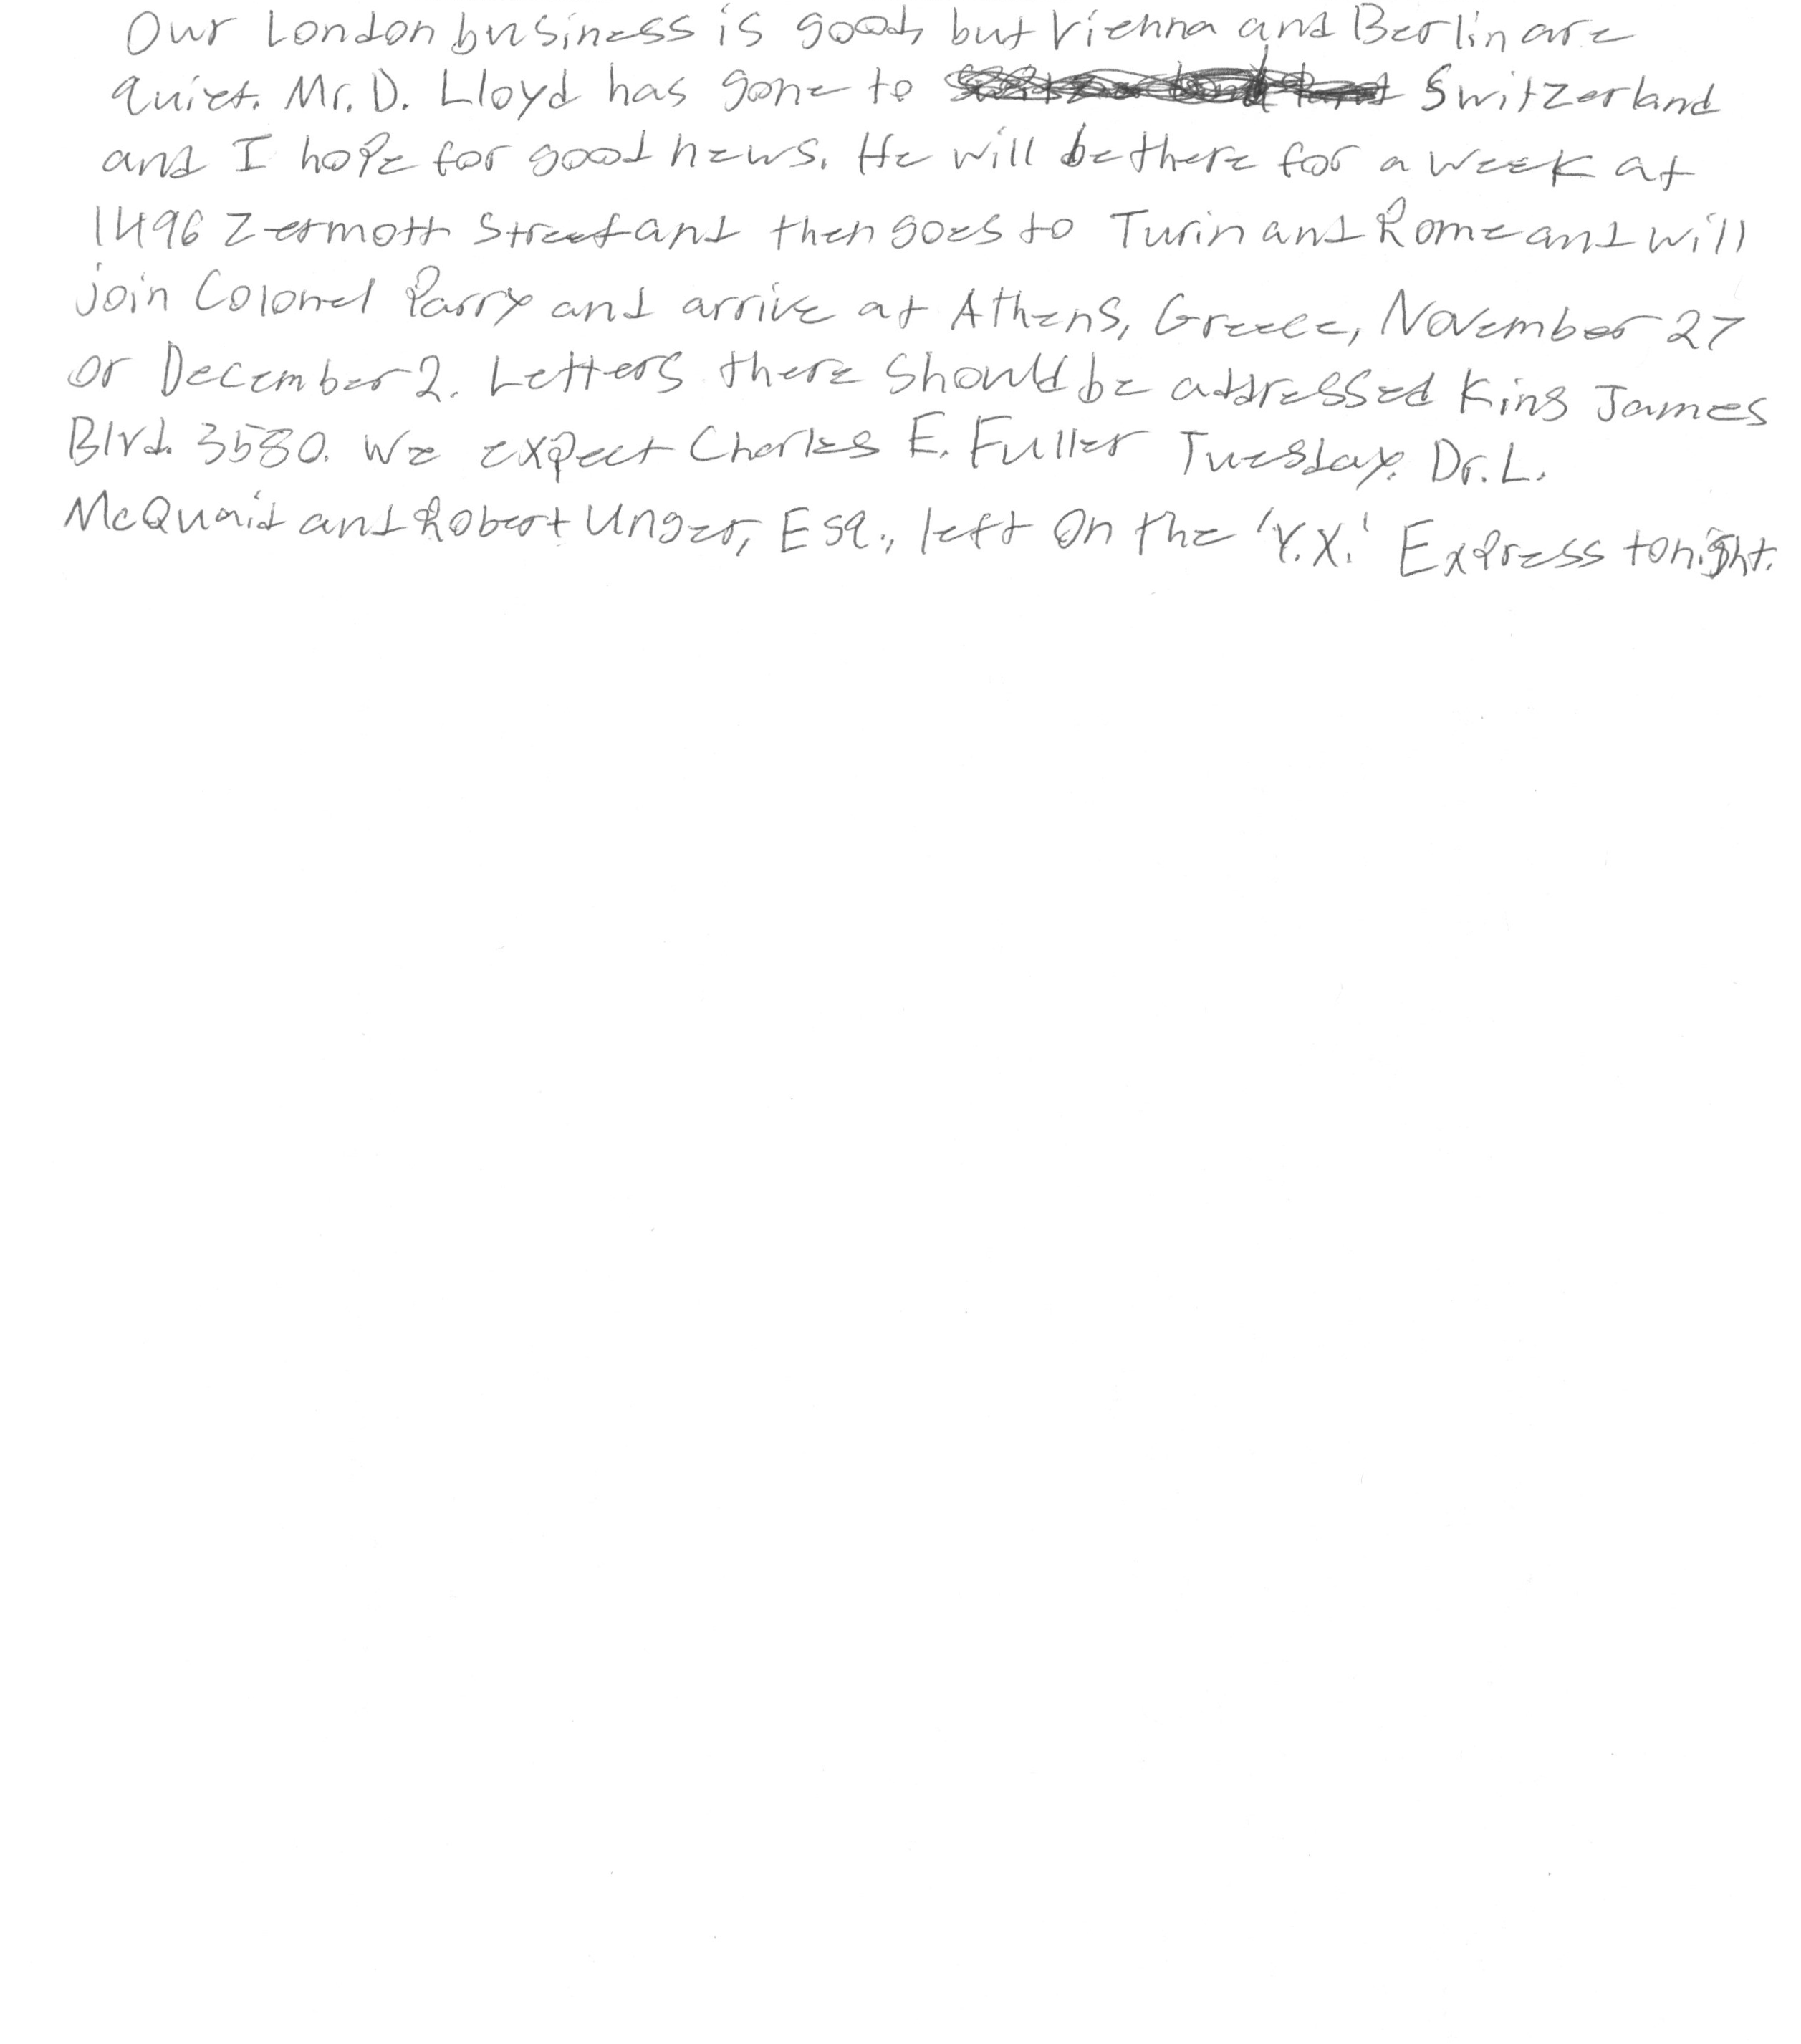 Our London business is good, but Vienna and Berlin are
quiet. Mr. D. Lloyd has gone to Switzerland
and I hope for good news. He will be there for a week at
1496 Zermott Street and then goes to Turin and Rome and will
join Colonel Parry and arrive at Athens, Greece, November 27
or December 2. Letters there should be addressed King James
Blvd. 3580. We expect Charles E. Fuller Tuesday. Dr. L.
McQuaid and Robert Unger, Esq., left on the 'Y.X.' Express tonight.